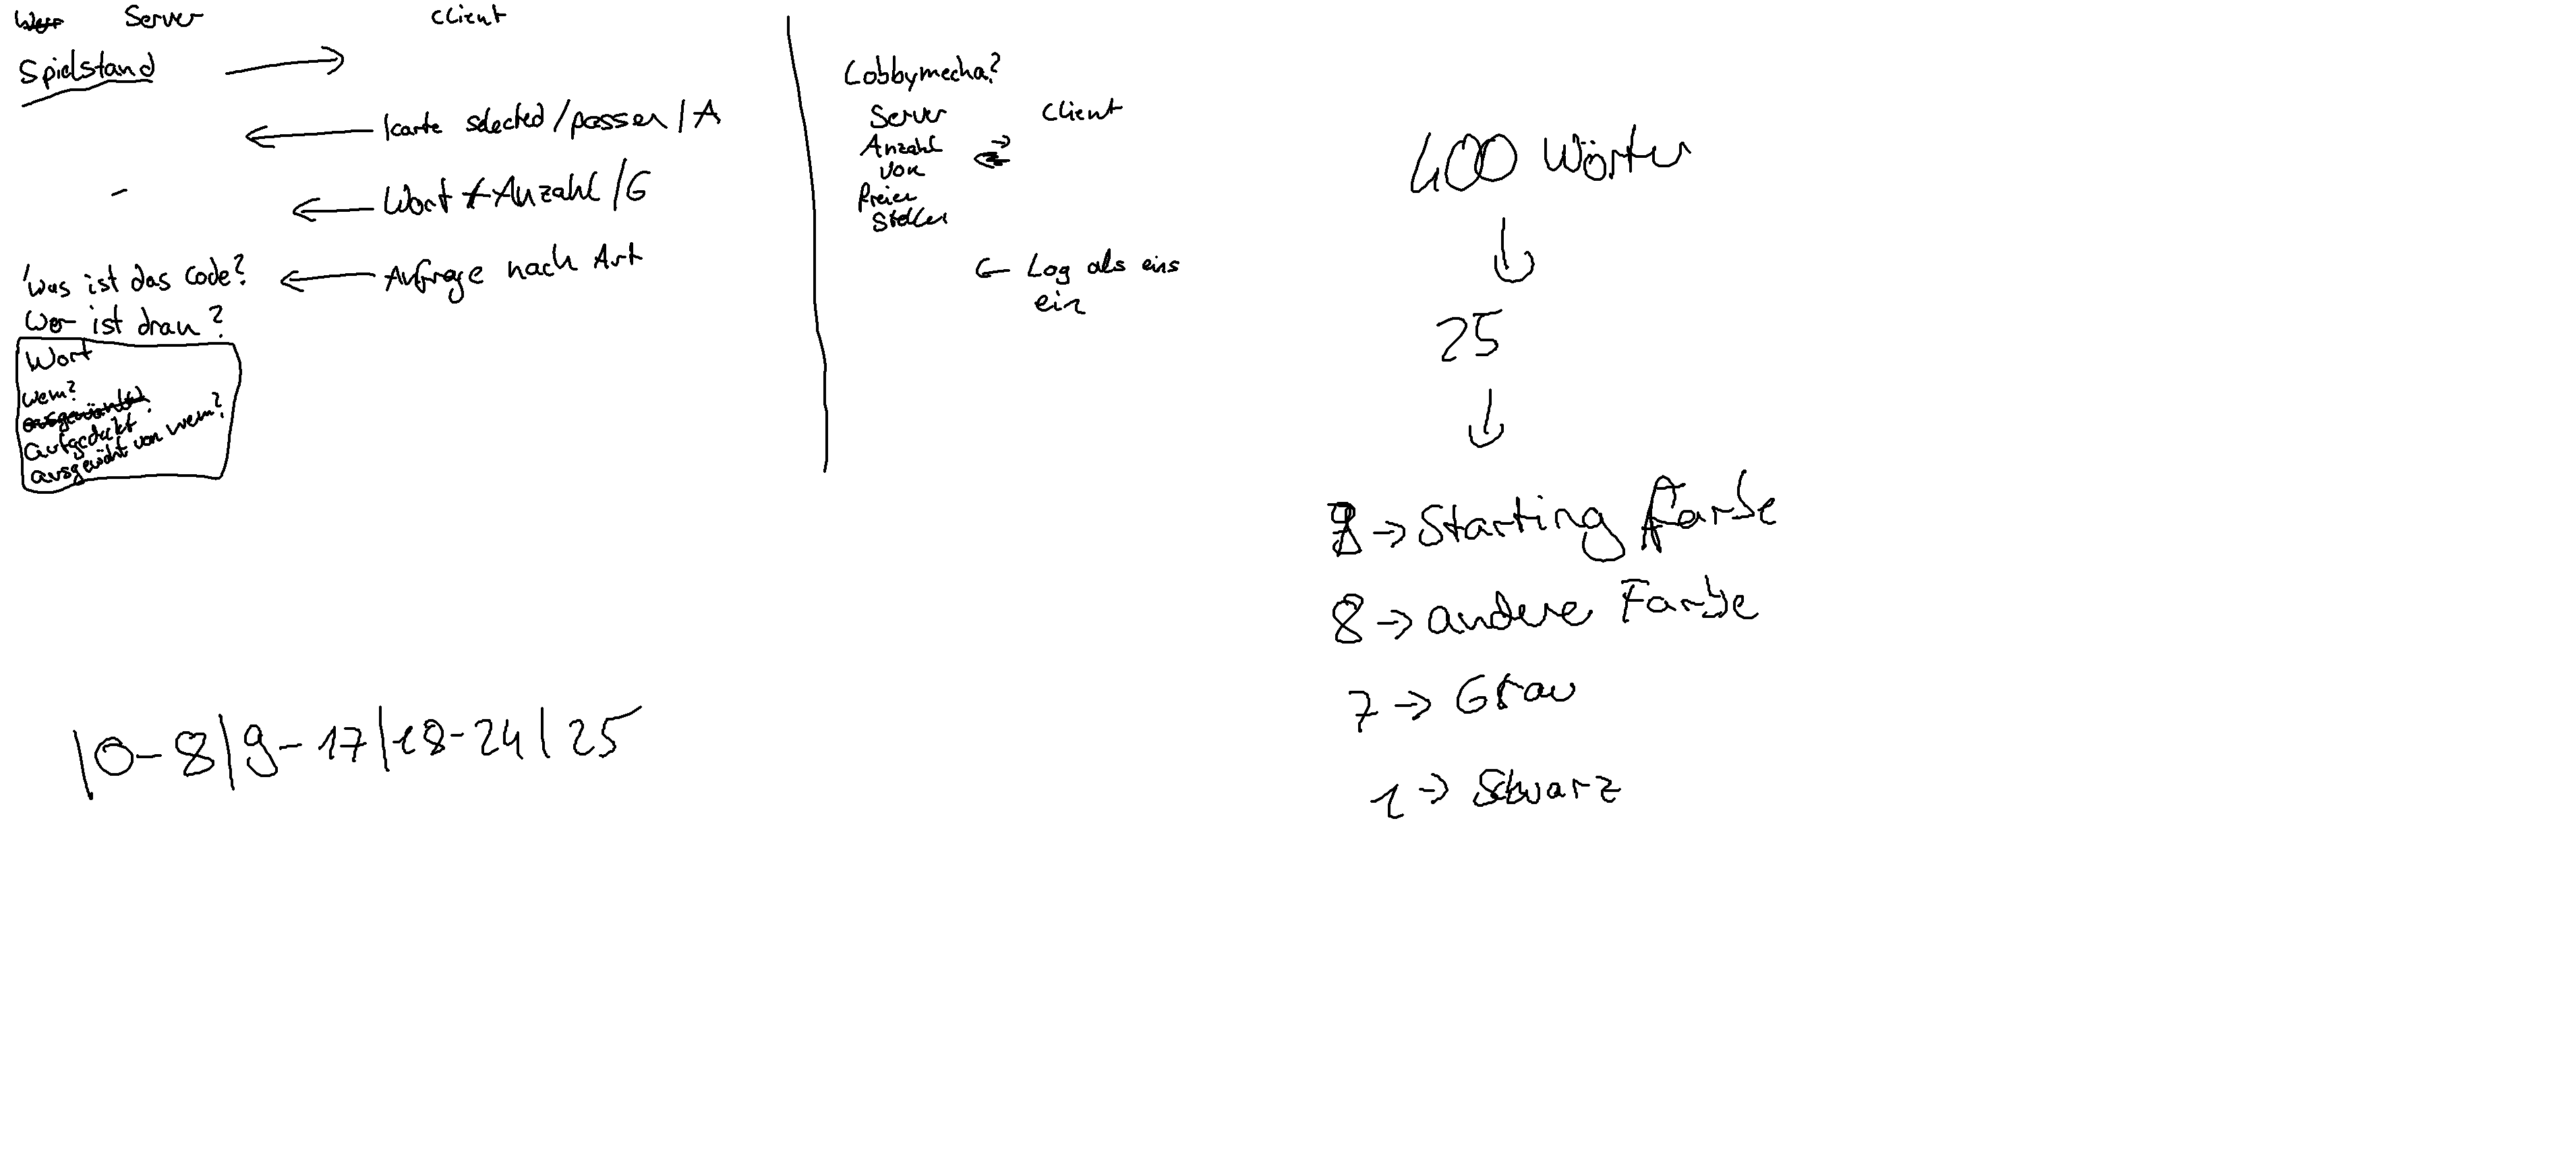 Server Client
Spielstand
Karte selected/passen/A
Wort + Anzahl/G
Anfrage nach Art
Was ist das Code?
Wer ist dran?
Wort
wem?
ausgewählt?
aufgedeckt
ausgewählt von wem?
Lobbymecha?
Server Client
Anzahl
von
freien
Stellen
Log als eins
ein
400 Wörter
25
→ Starting Farbe
8 → andere Farbe
7 → Grau
1 → Schwarz
|0-8|9-17|18-24|25